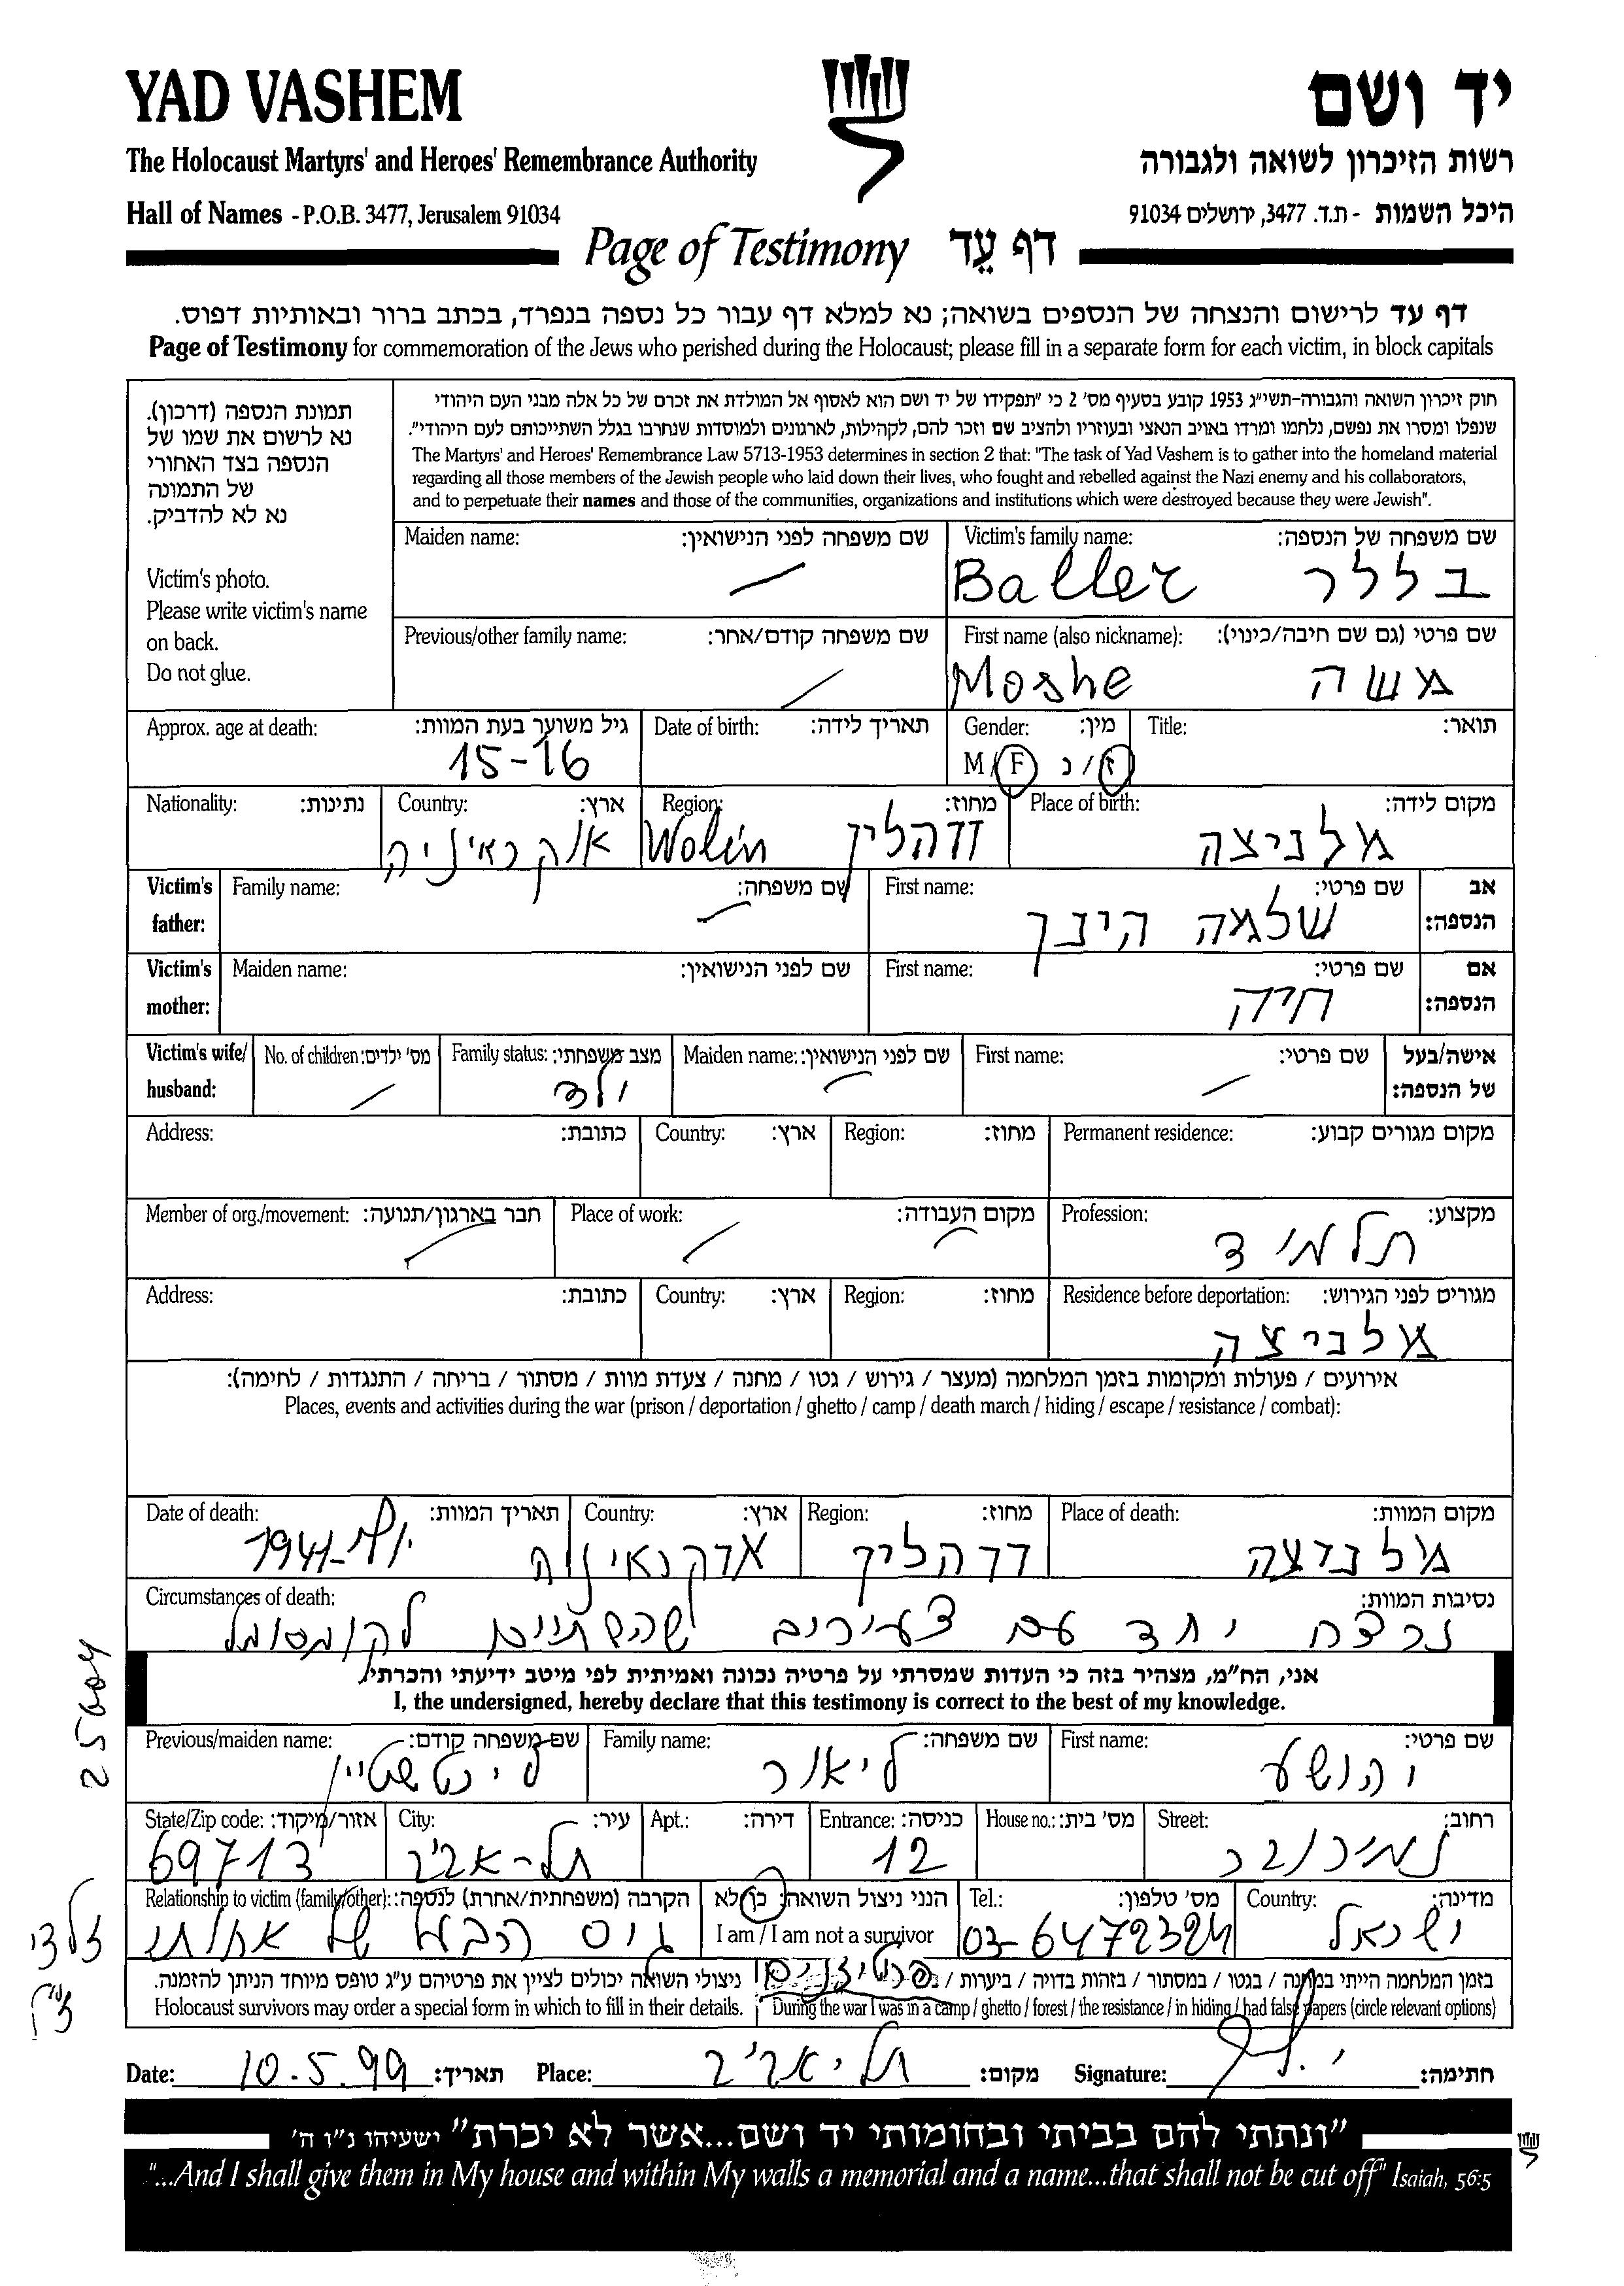 YAD VASHEM
יד ושם
The Holocaust Martyrs' and Heroes' Remembrance Authority
רשות הזיכרון לשואה ולגבורה
Hall of Names - P.O.B. 3477, Jerusalem 91034
היכל השמות - ת.ד. 3477, ירושלים 91034
Page of Testimony דף עֵד
דף עד לרישום והנצחה של הנספים בשואה; נא למלא דף עבור כל נספה בנפרד, בכתב ברור ובאותיות דפוס.
Page of Testimony for commemoration of the Jews who perished during the Holocaust; please fill in a separate form for each victim, in block capitals
תמונת הנספה (דרכון).
נא לרשום את שמו של
הנספה בצד האחורי
של התמונה
נא לא להדביק.
Victim's photo.
Please write victim's name
on back.
Do not glue.
חוק זיכרון השואה והגבורה-תשי"ג 1953 קובע בסעיף מס' 2 כי "תפקידו של יד ושם הוא לאסוף אל המולדת את זכרם של כל אלה מבני העם היהודי
שנפלו ומסרו את נפשם, נלחמו ומרדו באויב הנאצי ובעוזריו ולהציב שם וזכר להם, לקהילות, לארגונים ולמוסדות שנחרבו בגלל השתייכותם לעם היהודי".
The Martyrs' and Heroes' Remembrance Law 5713-1953 determines in section 2 that: "The task of Yad Vashem is to gather into the homeland material
regarding all those members of the Jewish people who laid down their lives, who fought and rebelled against the Nazi enemy and his collaborators,
and to perpetuate their names and those of the communities, organizations and institutions which were destroyed because they were Jewish".
Maiden name: שם משפחה לפני הנישואין: Victim's family name: שם משפחה של הנספה:
Baller בללר
Previous/other family name: שם משפחה קודם/אחר: First name (also nickname): שם פרטי (גם שם חיבה/כינוי):
Moshe משה
Approx. age at death: גיל משוער בעת המוות: Date of birth: תאריך לידה: Gender: מין: Title: תואר:
15-16 M/F ז/נ
Nationality: נתינות: Country: ארץ: Region: מחוז: Place of birth: מקום לידה:
אוקראיניה Wolin ווהלין מלניצה
Victim's father: Family name: שם משפחה: First name: שם פרטי: אב הנספה:
שלמה הינך
Victim's mother: Maiden name: שם לפני הנישואין: First name: שם פרטי: אם הנספה:
חיה
Victim's wife/ husband: No. of children: מס' ילדים: Family status: מצב משפחתי: Maiden name: שם לפני הנישואין: First name: שם פרטי: אישה/בעל של הנספה:
ילד
Address: כתובת: Country: ארץ: Region: מחוז: Permanent residence: מקום מגורים קבוע:
Member of org./movement: חבר בארגון/תנועה: Place of work: מקום העבודה: Profession: מקצוע:
תלמיד
Address: כתובת: Country: ארץ: Region: מחוז: Residence before deportation: מגורים לפני הגירוש:
מלניצה
אירועים / פעולות ומקומות בזמן המלחמה (מעצר / גירוש / גטו / מחנה / צעדת מוות / מסתור / בריחה / התנגדות / לחימה):
Places, events and activities during the war (prison / deportation / ghetto / camp / death march / hiding / escape / resistance / combat):
Date of death: תאריך המוות: Country: ארץ: Region: מחוז: Place of death: מקום המוות:
1941 אוקראיניה ווהלין מלניצה
Circumstances of death: נסיבות המוות:
נרצח יחד עם צעירים שהשתייכו לקומסומול
אני, הח"מ, מצהיר בזה כי העדות שמסרתי על פרטיה נכונה ואמיתית לפי מיטב ידיעתי והכרתי.
I, the undersigned, hereby declare that this testimony is correct to the best of my knowledge.
Previous/maiden name: שם משפחה קודם: Family name: שם משפחה: First name: שם פרטי:
ליכטשטיין ליאור יהושע
State/Zip code: אזור/מיקוד: City: עיר: Apt.: דירה: Entrance: כניסה: House no.: מס' בית: Street: רחוב:
69713 תל-אביב 12 נמירובר
Relationship to victim (family/other): הקרבה (משפחתית/אחרת) לנספה: הנני ניצול השואה: כן/לא Tel.: מס' טלפון: Country: מדינה:
גיס הבעל של אחותי I am / I am not a survivor 03-6472324 ישראל
ניצולי השואה יכולים לציין את פרטיהם ע"ג טופס מיוחד הניתן להזמנה.
Holocaust survivors may order a special form in which to fill in their details.
בזמן המלחמה הייתי במחנה / בגטו / במסתור / בזהות בדויה / ביערות / פרטיזנים
During the war I was in a camp / ghetto / forest / the resistance / in hiding / had false papers (circle relevant options)
Date: 10.5.99 תאריך: Place: תל אביב מקום: Signature: חתימה:
25004
"ונתתי להם בביתי ובחומותי יד ושם...אשר לא יכרת" ישעיהו נ"ו ה'
"...And I shall give them in My house and within My walls a memorial and a name...that shall not be cut off" Isaiah, 56:5